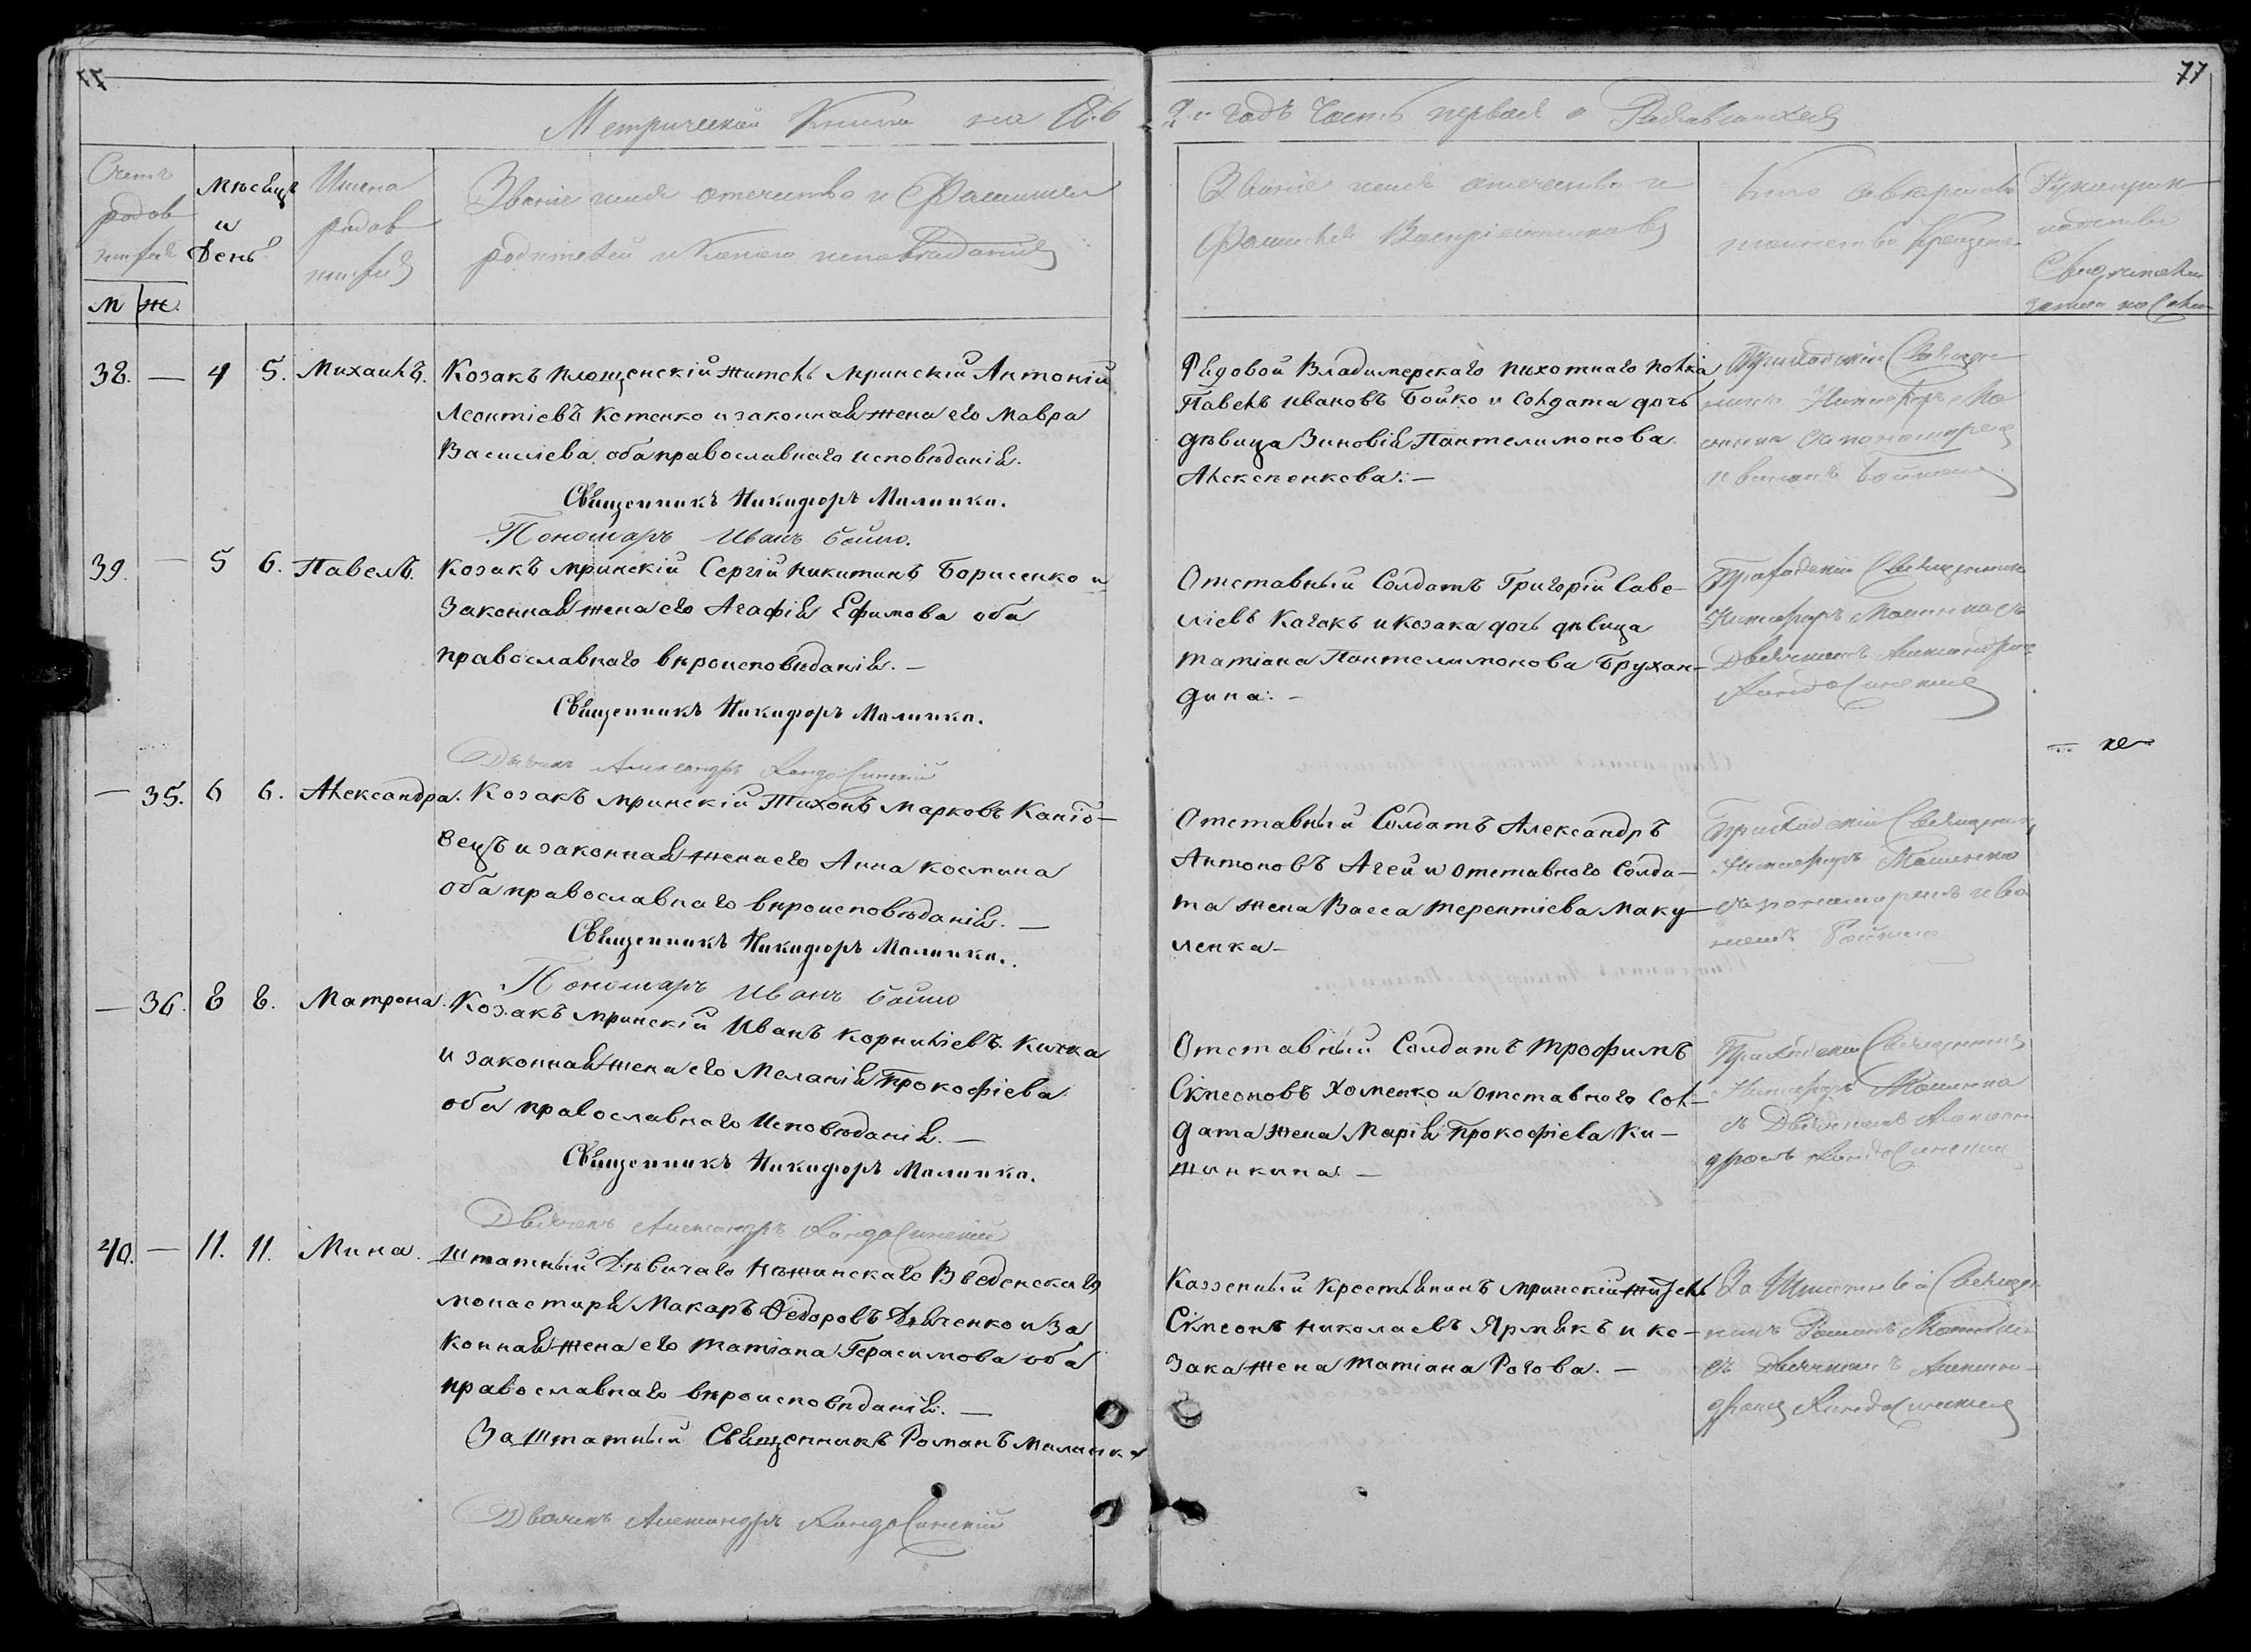 77
Метрической Книги на 186
2й годъ Часть первая о Раждающихся
Счетъ
родив
шихся
М Ж.
Мѣсяцъ
и
День
Имена
родив
шихся
Званіе имя отечество и Фамилія
родителей и Какого исповѣданія
Званіе имя отечество и
Фамилія Воспріемниковъ
Кто совершалъ
таинство Крещенія
Рукоприк
ладство
Свидѣтелей
записи по
38. — 4 5. Михаилъ.
Козакъ Площенскій житель Мринскій Антоній
Леонтіевъ Котенко и законная жена его Мавра
Василіева оба православнаго исповѣданія.
Священникъ Никифоръ Малинка.
Пономарь Иванъ Бойко.
Рядовой Владимерскаго пихотнаго полка
Павелъ Ивановъ Бойко и Солдата дочь
дѣвица Зиновія Пантелимонова
Алексѣенкова. —
Приходскій Священ
никъ Никифоръ Ма
линка съ пономаремъ
Иваномъ Бойкомъ
39. — 5 6. Павелъ.
Козакъ Мринскій Сергій Никитинъ Борисенко и
Законная жена его Агафія Ефимова оба
православнаго вѣроисповѣданія. —
Священникъ Никифоръ Малинка.
Дьячекъ Александръ
Отставный Солдатъ Григорій Саве-
ліевъ Кагокъ и козака дочь дѣвица
Татіана Пантелимонова Брухан-
дина. —
Приходскій Священникъ
Никифоръ Малинка съ
Дьячкомъ Александромъ
— 35. 6 6. Александра.
Козакъ Мринскій Тихонъ Марковъ Каніб-
вецъ и законная жена его Анна Космина
оба православнаго вѣроисповѣданія. —
Священникъ Никифоръ Малинка.
Пономарь Иванъ Бойко
Отставный Солдатъ Александръ
Антоновъ Агей и отставного Солда-
та жена Васса Терентіева Маку-
ленка —
Приходскій Священникъ
Никифоръ Малинка
съ пономаремъ Ива
номъ Бойкомъ
— 36. 8 8. Матрона.
Козакъ Мринскій Иванъ Корниліевъ Кижка
и законная жена его Меланія Прокофіева
оба православнаго Исповѣданія. —
Священникъ Никифоръ Малинка.
Дьячекъ Александръ
Отставный Солдатъ Трофимъ
Сімеоновъ Хоменко и отставного Сол-
дата жена Марія Прокофіева Ки-
жинкина —
Приходскій Священникъ
Никифоръ Малинка
съ Дьячкомъ Алексан
дромъ
40. — 11. 11. Мина.
Штатный Дѣвичаго Нѣжинскаго Введенскаго
монастыря Макаръ Ѳедоровъ Дяченко и За
конная жена его Татіана Герасимова оба
православнаго вѣроисповѣданія. —
Заштатный Священникъ Романъ Малинка
Дьячекъ Александръ
Каззенный Крестьянинъ Мринскій житель
Сімеонъ Николаевъ Ярмакъ и ко-
зака жена Татіана Рогова. —
За Штатный Священ
никъ Романъ Малинка
съ Дьячкомъ Алексан-
дромъ